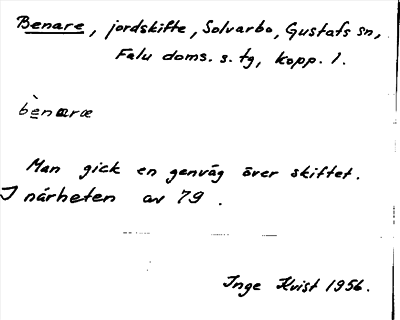 Benare, jordskifte, Solvarbo, Gustafs sn,
Falu doms. s. tg, kopp. l.
bènaræ
Man gick en genväg över skiftet.
I närheten av 79.
Inge Kvist 1956.